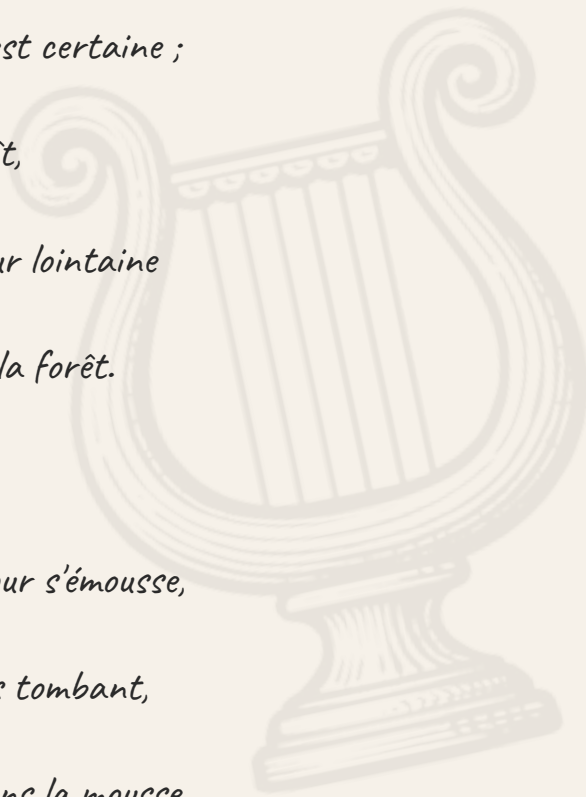 est certaine ;
lointaine
la forêt.
s'émousse,
tombant,
la mousse